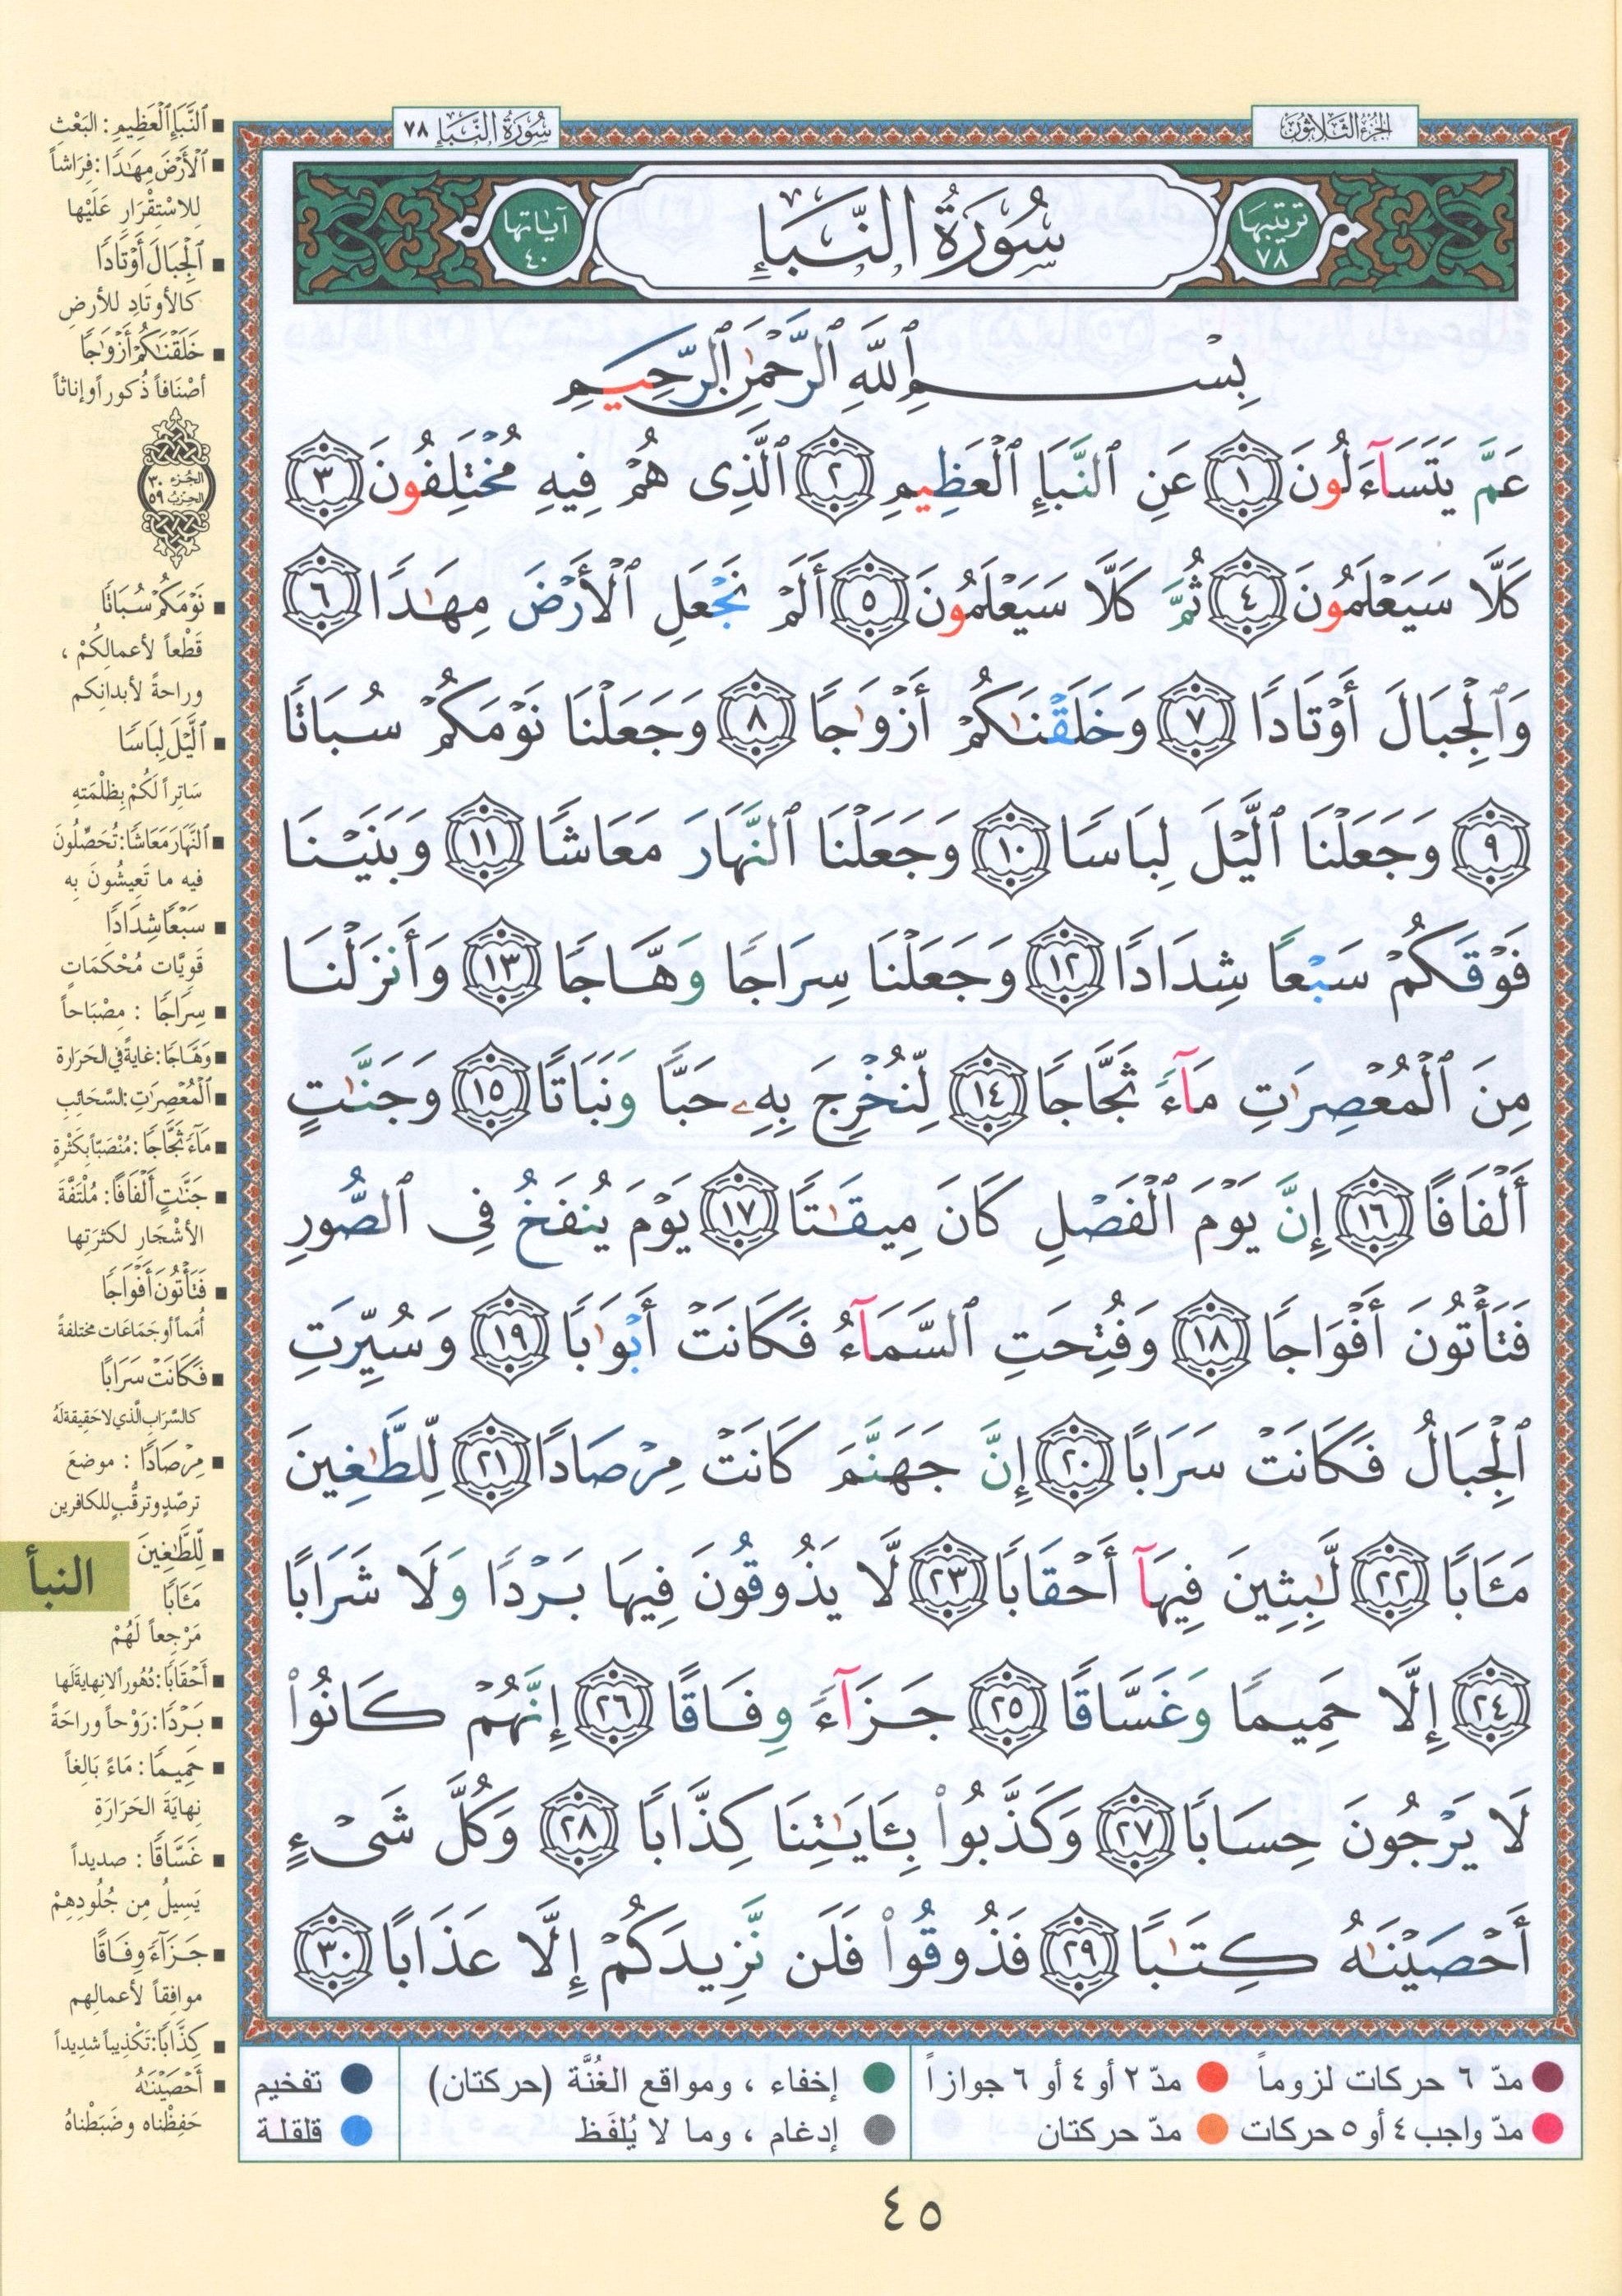 الجزء الثلاثون
سُورَةُ النَّبَإِ ٧٨
ترتيبها ٧٨
سُورَةُ النَّبَإِ
آياتها ٤٠
بِسْمِ ٱللَّهِ ٱلرَّحْمَٰنِ ٱلرَّحِيمِ
عَمَّ يَتَسَآءَلُونَ ١ عَنِ ٱلنَّبَإِ ٱلْعَظِيمِ ٢ ٱلَّذِى هُمْ فِيهِ مُخْتَلِفُونَ ٣
كَلَّا سَيَعْلَمُونَ ٤ ثُمَّ كَلَّا سَيَعْلَمُونَ ٥ أَلَمْ نَجْعَلِ ٱلْأَرْضَ مِهَٰدًا ٦
وَٱلْجِبَالَ أَوْتَادًا ٧ وَخَلَقْنَٰكُمْ أَزْوَٰجًا ٨ وَجَعَلْنَا نَوْمَكُمْ سُبَاتًا
٩ وَجَعَلْنَا ٱلَّيْلَ لِبَاسًا ١٠ وَجَعَلْنَا ٱلنَّهَارَ مَعَاشًا ١١ وَبَنَيْنَا
فَوْقَكُمْ سَبْعًا شِدَادًا ١٢ وَجَعَلْنَا سِرَاجًا وَهَّاجًا ١٣ وَأَنزَلْنَا
مِنَ ٱلْمُعْصِرَٰتِ مَآءً ثَجَّاجًا ١٤ لِّنُخْرِجَ بِهِۦ حَبًّا وَنَبَاتًا ١٥ وَجَنَّٰتٍ
أَلْفَافًا ١٦ إِنَّ يَوْمَ ٱلْفَصْلِ كَانَ مِيقَٰتًا ١٧ يَوْمَ يُنفَخُ فِى ٱلصُّورِ
فَتَأْتُونَ أَفْوَاجًا ١٨ وَفُتِحَتِ ٱلسَّمَآءُ فَكَانَتْ أَبْوَٰبًا ١٩ وَسُيِّرَتِ
ٱلْجِبَالُ فَكَانَتْ سَرَابًا ٢٠ إِنَّ جَهَنَّمَ كَانَتْ مِرْصَادًا ٢١ لِّلطَّٰغِينَ
مَـَٔابًا ٢٢ لَّٰبِثِينَ فِيهَآ أَحْقَابًا ٢٣ لَّا يَذُوقُونَ فِيهَا بَرْدًا وَلَا شَرَابًا
٢٤ إِلَّا حَمِيمًا وَغَسَّاقًا ٢٥ جَزَآءً وِفَاقًا ٢٦ إِنَّهُمْ كَانُوا۟
لَا يَرْجُونَ حِسَابًا ٢٧ وَكَذَّبُوا۟ بِـَٔايَٰتِنَا كِذَّابًا ٢٨ وَكُلَّ شَىْءٍ
أَحْصَيْنَٰهُ كِتَٰبًا ٢٩ فَذُوقُوا۟ فَلَن نَّزِيدَكُمْ إِلَّا عَذَابًا ٣٠
ٱلنَّبَإِ ٱلْعَظِيمِ : البَعْثِ
ٱلْأَرْضَ مِهَٰدًا : فِرَاشاً
لِلاسْتِقْرَارِ عَلَيْها
ٱلْجِبَالَ أَوْتَادًا
كالأوتَادِ للأرضِ
خَلَقْنَٰكُمْ أَزْوَٰجًا
أصْنَافاً ذُكوراً وإناثاً
الجزء ٣٠
الحزب ٥٩
نَوْمَكُمْ سُبَاتًا
قَطْعاً لأعمالِكُمْ ،
وراحةً لأبدانِكم
ٱلَّيْلَ لِبَاسًا
سَاتِراً لَكُمْ بِظلْمَتهِ
ٱلنَّهَارَ مَعَاشًا : تُحَصِّلُونَ
فيه ما تَعِيشُونَ بِه
سَبْعًا شِدَادًا
قَوِيَّات مُحْكَمَاتٍ
سِرَاجًا : مِصْبَاحاً
وَهَّاجًا : غايةً في الحَرَارة
ٱلْمُعْصِرَٰتِ : السَّحَائِبِ
مَآءً ثَجَّاجًا : مُنْصَبّاً بِكَثْرةٍ
جَنَّٰتٍ أَلْفَافًا : مُلْتَفَّةَ
الأشْجَارِ لكثرَتِها
فَتَأْتُونَ أَفْوَاجًا
أُمَماً أو جَمَاعَات مختلفةً
فَكَانَتْ سَرَابًا
كالسَّرَابِ الَّذي لا حَقِيقةَ لَهُ
مِرْصَادًا : موضعَ
ترصّدٍ وترقُّبٍ للكافرين
لِّلطَّٰغِينَ
مَـَٔابًا
مَرْجِعاً لَهُمْ
أَحْقَابًا : دُهُوراً لا نِهايةَ لَها
بَرْدًا : رَوْحاً وراحَةً
حَمِيمًا : مَاءً بَالِغاً
نِهايَةَ الحَرَارَةِ
غَسَّاقًا : صديداً
يَسِيلُ مِن جُلُودِهِمْ
جَزَآءً وِفَاقًا
موافِقاً لأعمالِهم
كِذَّابًا : تَكْذِيباً شدِيداً
أَحْصَيْنَٰهُ
حَفِظْناه وضَبَطْناهُ
النبأ
مدّ ٦ حركات لزوماً
مدّ ٢ أو ٤ أو ٦ جوازاً
إخفاء ، ومواقع الغُنَّة (حركتان)
تفخيم
مدّ واجب ٤ أو ٥ حركات
مدّ حركتان
إدغام ، وما لا يُلفَظ
قلقلة
٤٥